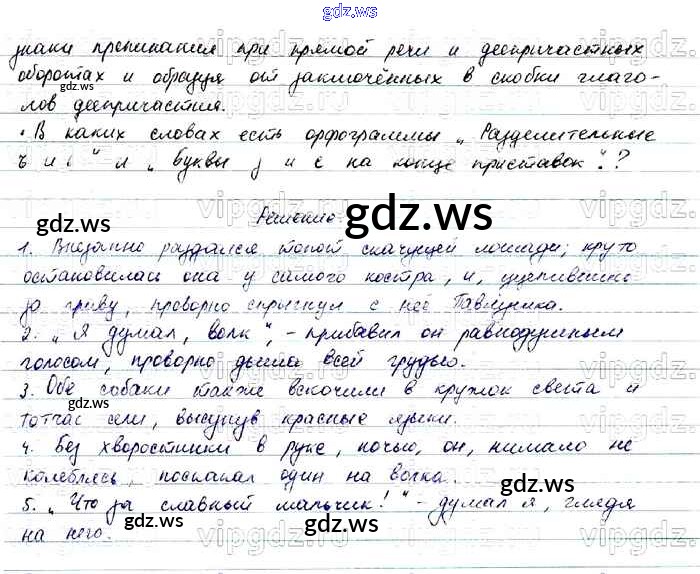 gdz.ws
знаки препинания при прямой речи и деепричастных
оборотах и образуя от заключённых в скобки глаго-
лов деепричастия.
• В каких словах есть орфограммы „Разделительные
ъ и ь" и „Буквы з и с на конце приставок"?
Решение.
1. Внезапно раздался топот скачущей лошади; круто
остановилась она у самого костра, и, уцепившись
за гриву, проворно спрыгнул с неё Павлушка.
2. „Я думал, волк", – прибавил он равнодушным
голосом, проворно дыша всей грудью.
3. Обе собаки также вскочили в кружок света и
тотчас сели, высунув красные языки.
4. Без хворостинки в руке, ночью, он, нимало не
колеблясь, поскакал один на волка.
5. „Что за славный мальчик!" – думал я, глядя
на него.
gdz.ws
gdz.ws
gdz.ws
gdz.ws
gdz.ws
gdz.ws
gdz.ws
vipgdz.ru